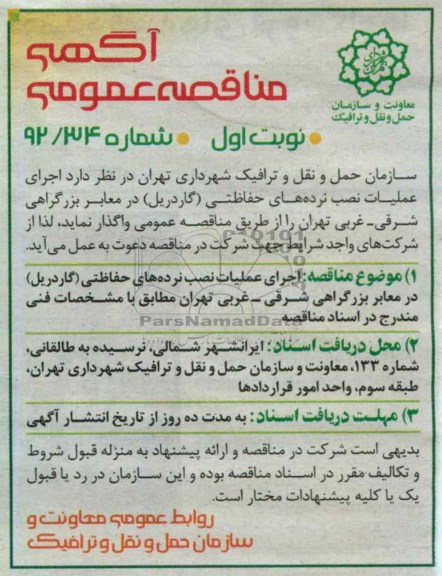 آگهی
مناقصه عمومی
معاونت و سازمان
حمل و نقل و ترافیک
• نوبت اول • شماره ۹۲/۳۴
سازمان حمل و نقل و ترافیک شهرداری تهران در نظر دارد اجرای
عملیات نصب نرده‌های حفاظتی (گاردریل) در معابر بزرگراهی
شرقی- غربی تهران را از طریق مناقصه عمومی واگذار نماید، لذا از
شرکت‌های واجد شرایط جهت شرکت در مناقصه دعوت به عمل می‌آید.
۱) موضوع مناقصه: اجرای عملیات نصب نرده‌های حفاظتی (گاردریل)
در معابر بزرگراهی شرقی – غربی تهران مطابق با مشخصات فنی
مندرج در اسناد مناقصه
ParsNamadData
۲) محل دریافت اسناد: ایرانشهر شمالی، نرسیده به طالقانی،
شماره ۱۳۳، معاونت و سازمان حمل و نقل و ترافیک شهرداری تهران،
طبقه سوم، واحد امور قراردادها
۳) مهلت دریافت اسناد: به مدت ده روز از تاریخ انتشار آگهی
بدیهی است شرکت در مناقصه و ارائه پیشنهاد به منزله قبول شروط
و تکالیف مقرر در اسناد مناقصه بوده و این سازمان در رد یا قبول
یک یا کلیه پیشنهادات مختار است.
روابط عمومی معاونت و
سازمان حمل و نقل و ترافیک